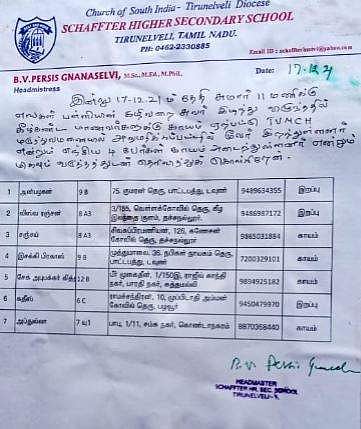 Church of South India- Tirunelveli Diocese
SCHAFFTER HIGHER SECONDARY SCHOOL
TIRUNELVELI, TAMIL NADU.
PH: 0462-2330885
Email ID : schaffterhsstvl@gmail.com
B.V. PERSIS GNANASELVI, M.Sc., M.Ed., M.Phil.,
Headmistress
Date: 17-12-21
இன்று 17-12-21 ம் தேதி சுமார் 11 மணிக்கு
எங்கள் பள்ளியின் கழிவறை சுவர் இடிந்து
கீழ்கண்ட மாணவர்களுக்கு காயம் ஏற்பட்டு TVMCH
மருத்துவமனையில் அனுமதிக்கப்பட்டதில்
என்றும் 4 பேர்கள் காயம் அடைந்துள்ளனர் எனவும்
மிகவும் வருத்தத்துடன் தெரிவித்துக் கொள்கிறேன்.
1 அன்பழகன் 9 B 75. குமரன் தெரு, பாட்டபத்து, டவுண் 9489634355 இறப்பு
2 விஸ்வ ரஞ்சன் 8 A3 3/185, வெள்ளக்கோவில் தெரு, கீழ தெரு, தச்சநல்லூர். 9486987172 இறப்பு
3 சஞ்சய் 8 A3 126, கணேசன் கோவில் தெரு, தச்சநல்லூர். 9865031884 காயம்
4 இசக்கி பிரகாஸ் 9 B முத்துமாலை, 36. நபிகள் நாயகம் தெரு, பாட்டபத்து, டவுண் 7200329101 காயம்
5 சேக அபுபக்கர் கித்தானி 12 B மி முகைதீன், 1/150இ, ராஜீவ் காந்தி நகர், பாரதி நகர், சுத்தமல்லி 9894925182 காயம்
6 சுதீஸ் 6 C ராமச்சந்திரன், 10, முப்பிடாதி அம்மன் கோவில் தெரு, பழவூர் 9450479970 இறப்பு
7 அப்துல்லா 7 பாடி 1/11, நகர், கொண்டாநகரம் 8870368440 காயம்
B.V. Persis Gnanaselvi
HEADMASTER
SCHAFFTER HR. SEC. SCHOOL
TIRUNELVELI-